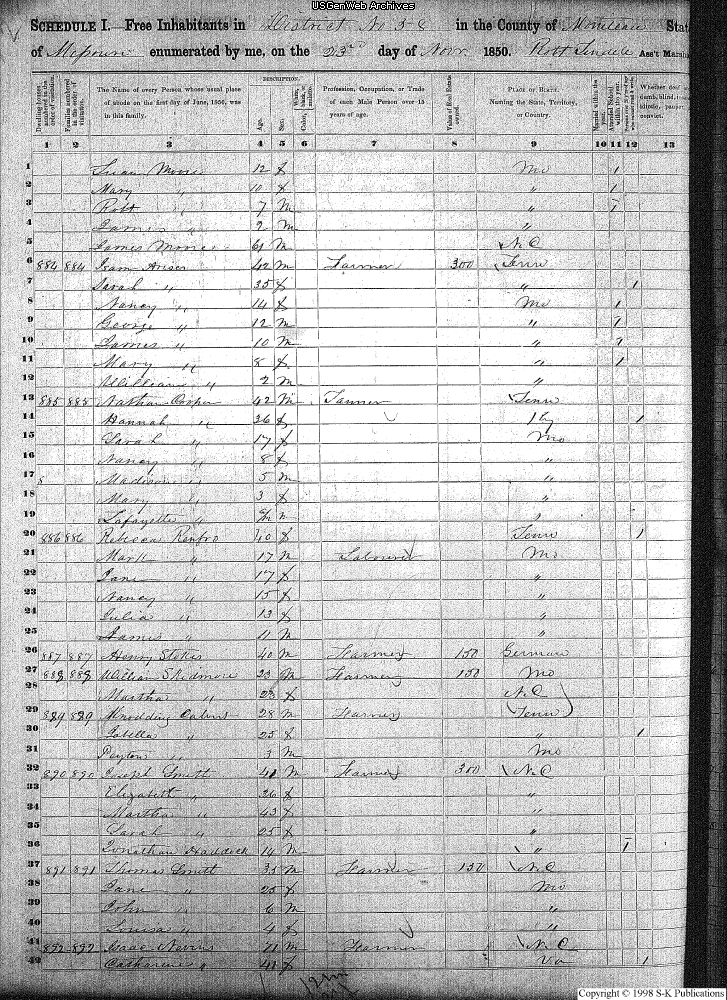 USGenWeb Archives
SCHEDULE I. Free Inhabitants in District No 58 in the County of Moniteau State
of Missouri enumerated by me, on the 23d day of Novr 1850. Robt Ass't Marshal
DESCRIPTION.
Dwelling-houses numbered in the order of visitation.
Families numbered in the order of visitation.
The Name of every Person whose usual place of abode on the first day of June, 1850, was in this family.
Age.
Sex.
White, black, or mulatto.
Color,
Profession, Occupation, or Trade of each Male Person over 15 years of age.
Value of Real Estate owned.
PLACE OF BIRTH.
Naming the State, Territory, or Country.
Married within the year.
Attended School within the year.
Whether deaf and dumb, blind,
1 2 3 4 5 6 7 8 9 10 11 12 13
1 Susan Moore 12 f Mo 1
2 Mary " 10 f " 1
3 Robt " 7 m " 1
4 James " 2 m "
5 James Moore 61 m N.C
6 884 884 42 m Farmer 300 Tenn
7 Sarah " 35 f " 1
8 Nancy " 14 f Mo 1
9 George " 12 m " 1
10 James " 10 m " 1
11 Mary " 8 f " 1
12 William " 2 m "
13 885 885 Nathan Cooper 42 m Tanner Tenn
14 Hannah " 36 f Ky 1
15 Sarah " 17 f Mo
16 Nancy " 8 f "
17 Madison " 5 m "
18 Mary " 3 f "
19 Lafayette " m "
20 886 886 Rebecca Renfro 40 f Tenn 1
21 Mark " 17 m Labourer Mo
22 Jane " 17 f "
23 Nancy " 15 f "
24 Julia " 13 f "
25 James " 11 m "
26 887 887 Henry Stokes 40 m Farmer 150 German
27 888 888 William Skidmore 23 m Farmer 150 Mo
28 Martha " 23 f N.C
29 889 889 28 m Farmer Tenn
30 " 25 f " 1
31 Peyton " 3 m Mo
32 890 890 Joseph Smith 41 m Farmer 300 N.C
33 Elizabeth " 36 f "
34 Martha " 43 f "
35 Sarah " 25 f "
36 Jonathan Haddock 14 m " 1
37 891 891 Thomas Smith 35 m Farmer 150 N.C
38 Jane " 25 f Mo
39 John " 6 m "
40 Louisa " 4 f "
41 892 892 Isaac Nevins 71 m Farmer N.C
42 Catharine " 41 f Va 1
Copyright © 1998 S-K Publications